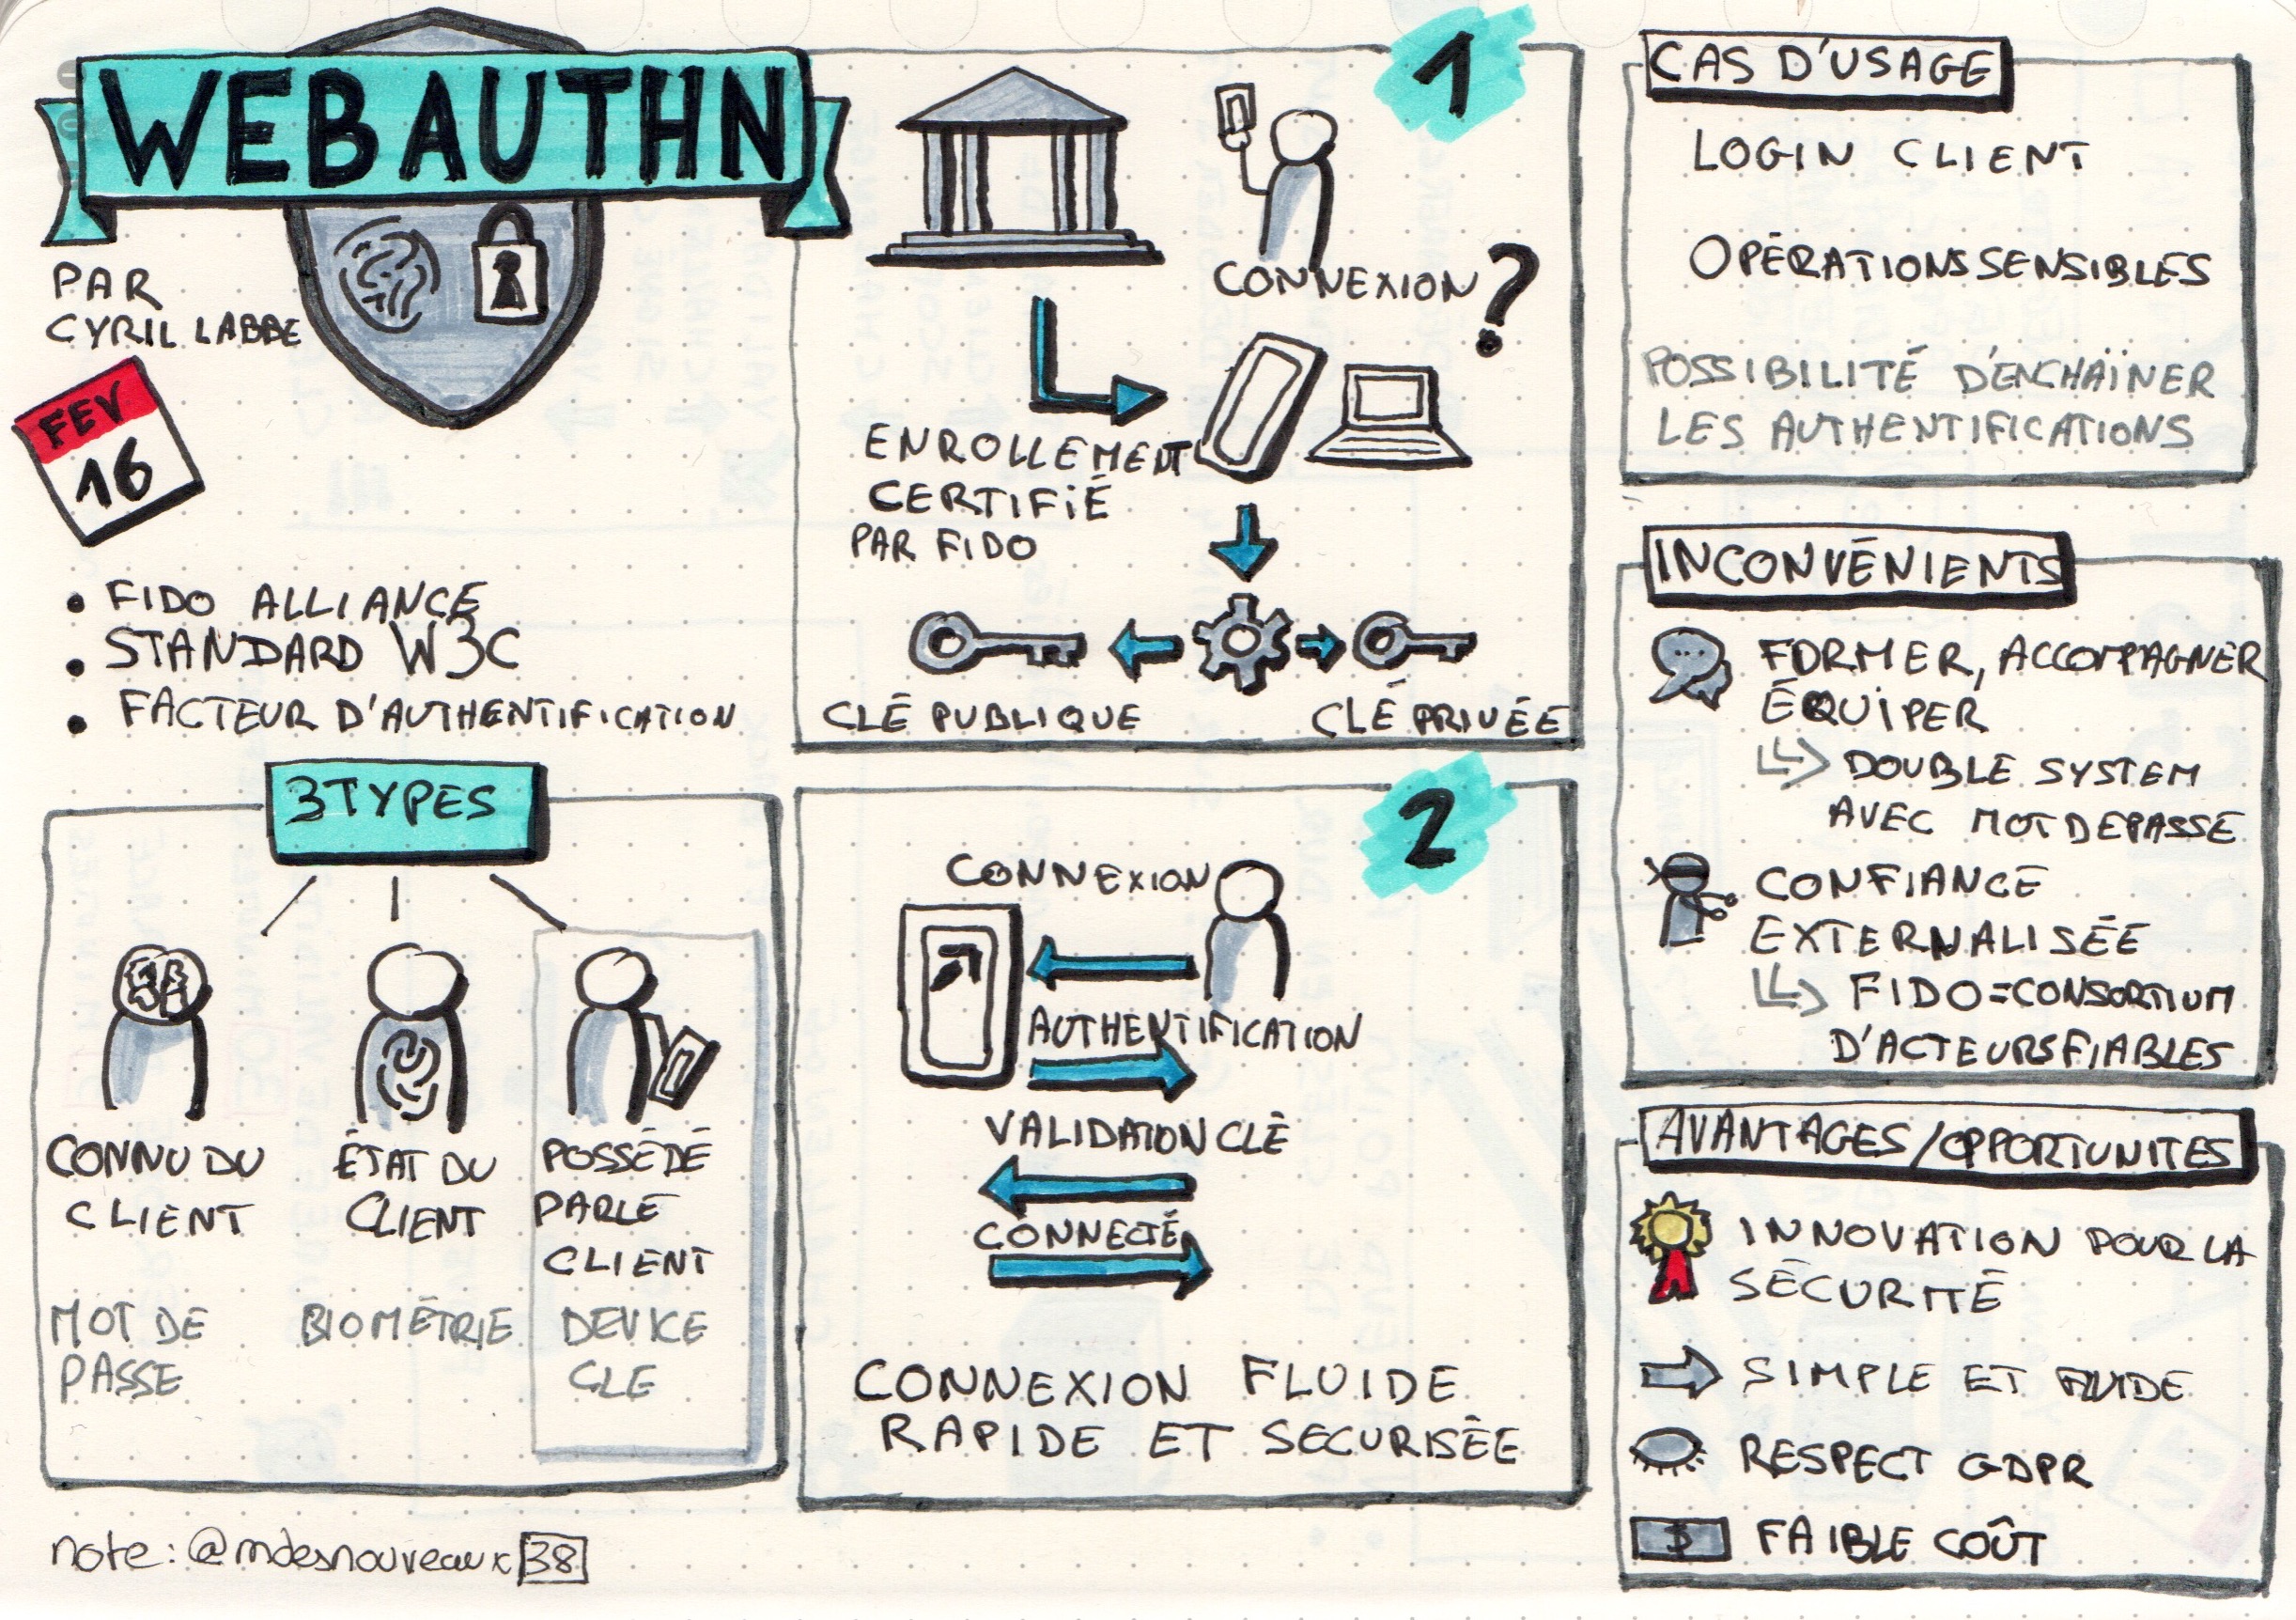 WEBAUTHN
PAR
CYRIL LABBE
FEV
16
• FIDO ALLIANCE
• STANDARD W3C
• FACTEUR D'AUTHENTIFICATION
3 TYPES
CONNU DU
CLIENT
MOT DE
PASSE
ÉTAT DU
CLIENT
BIOMÉTRIE
POSSÉDÉ
PAR LE
CLIENT
DEVICE
CLE
note: @mdesnouveaux 38
1
CONNEXION ?
ENROLLEMENT
CERTIFIÉ
PAR FIDO
CLÉ PUBLIQUE
CLÉ PRIVÉE
2
CONNEXION
AUTHENTIFICATION
VALIDATION CLÉ
CONNECTÉ
CONNEXION FLUIDE
RAPIDE ET SECURISÉE
CAS D'USAGE
LOGIN CLIENT
OPÉRATIONS SENSIBLES
POSSIBILITÉ D'ENCHAÎNER
LES AUTHENTIFICATIONS
INCONVÉNIENTS
FORMER, ACCOMPAGNER
ÉQUIPER
DOUBLE SYSTEM
AVEC MOT DE PASSE
CONFIANCE
EXTERNALISÉE
FIDO = CONSORTIUM
D'ACTEURS FIABLES
AVANTAGES/OPPORTUNITES
INNOVATION POUR LA
SÉCURITÉ
SIMPLE ET FLUIDE
RESPECT GDPR
$ FAIBLE COÛT